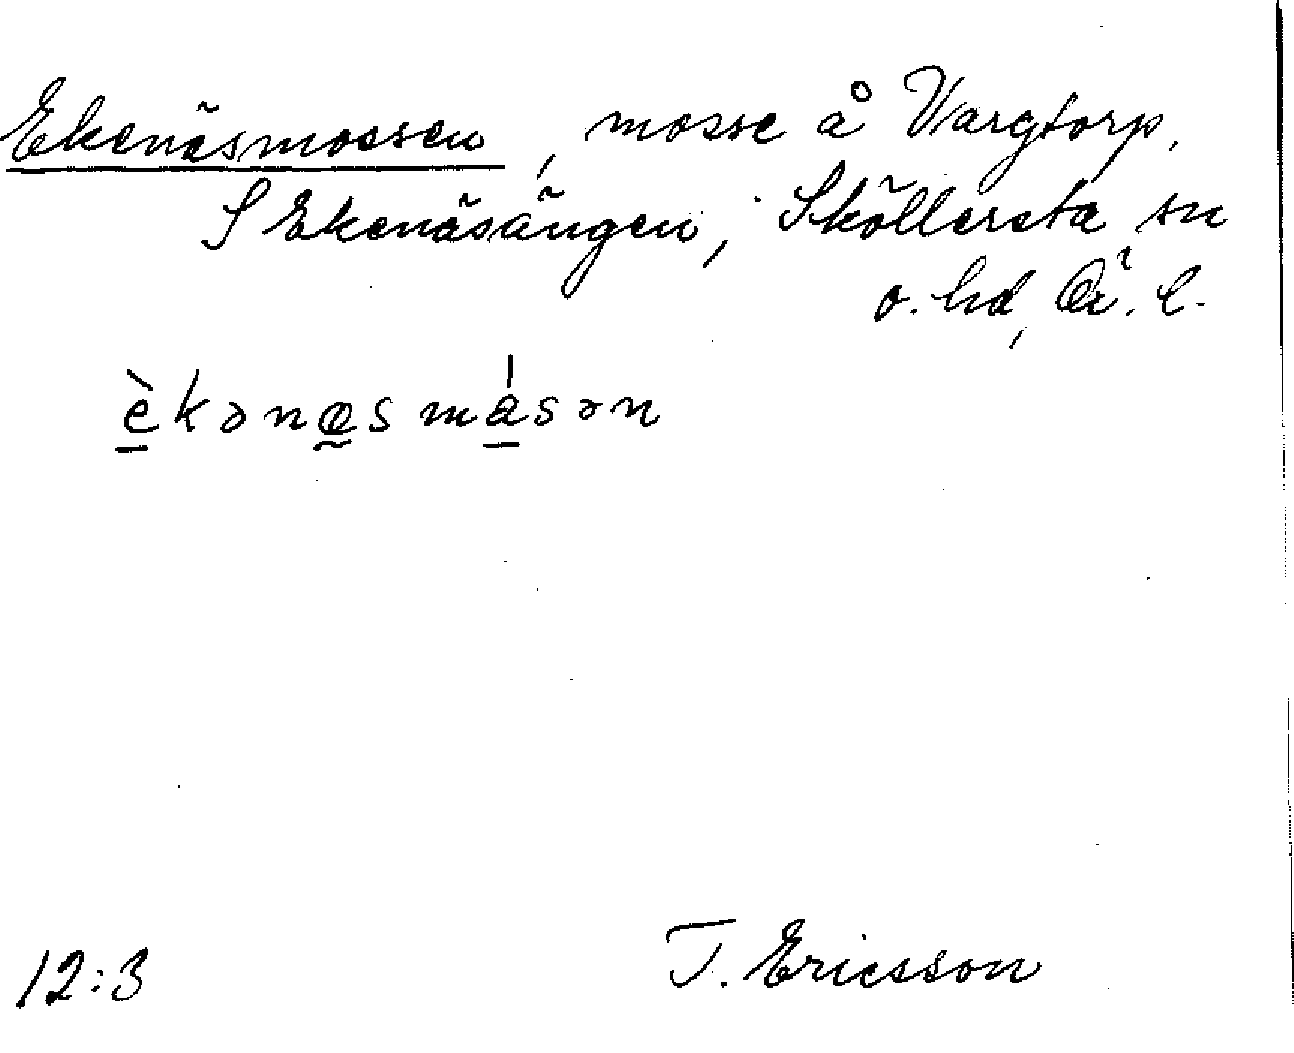 Ekenäsmossen, mosse å Vargtorp,
S Ekenäsängen, Sköllersta sn
o. hd, Ör. l.
è̠kənœ̰smá̠sən
12:3 T. Ericsson